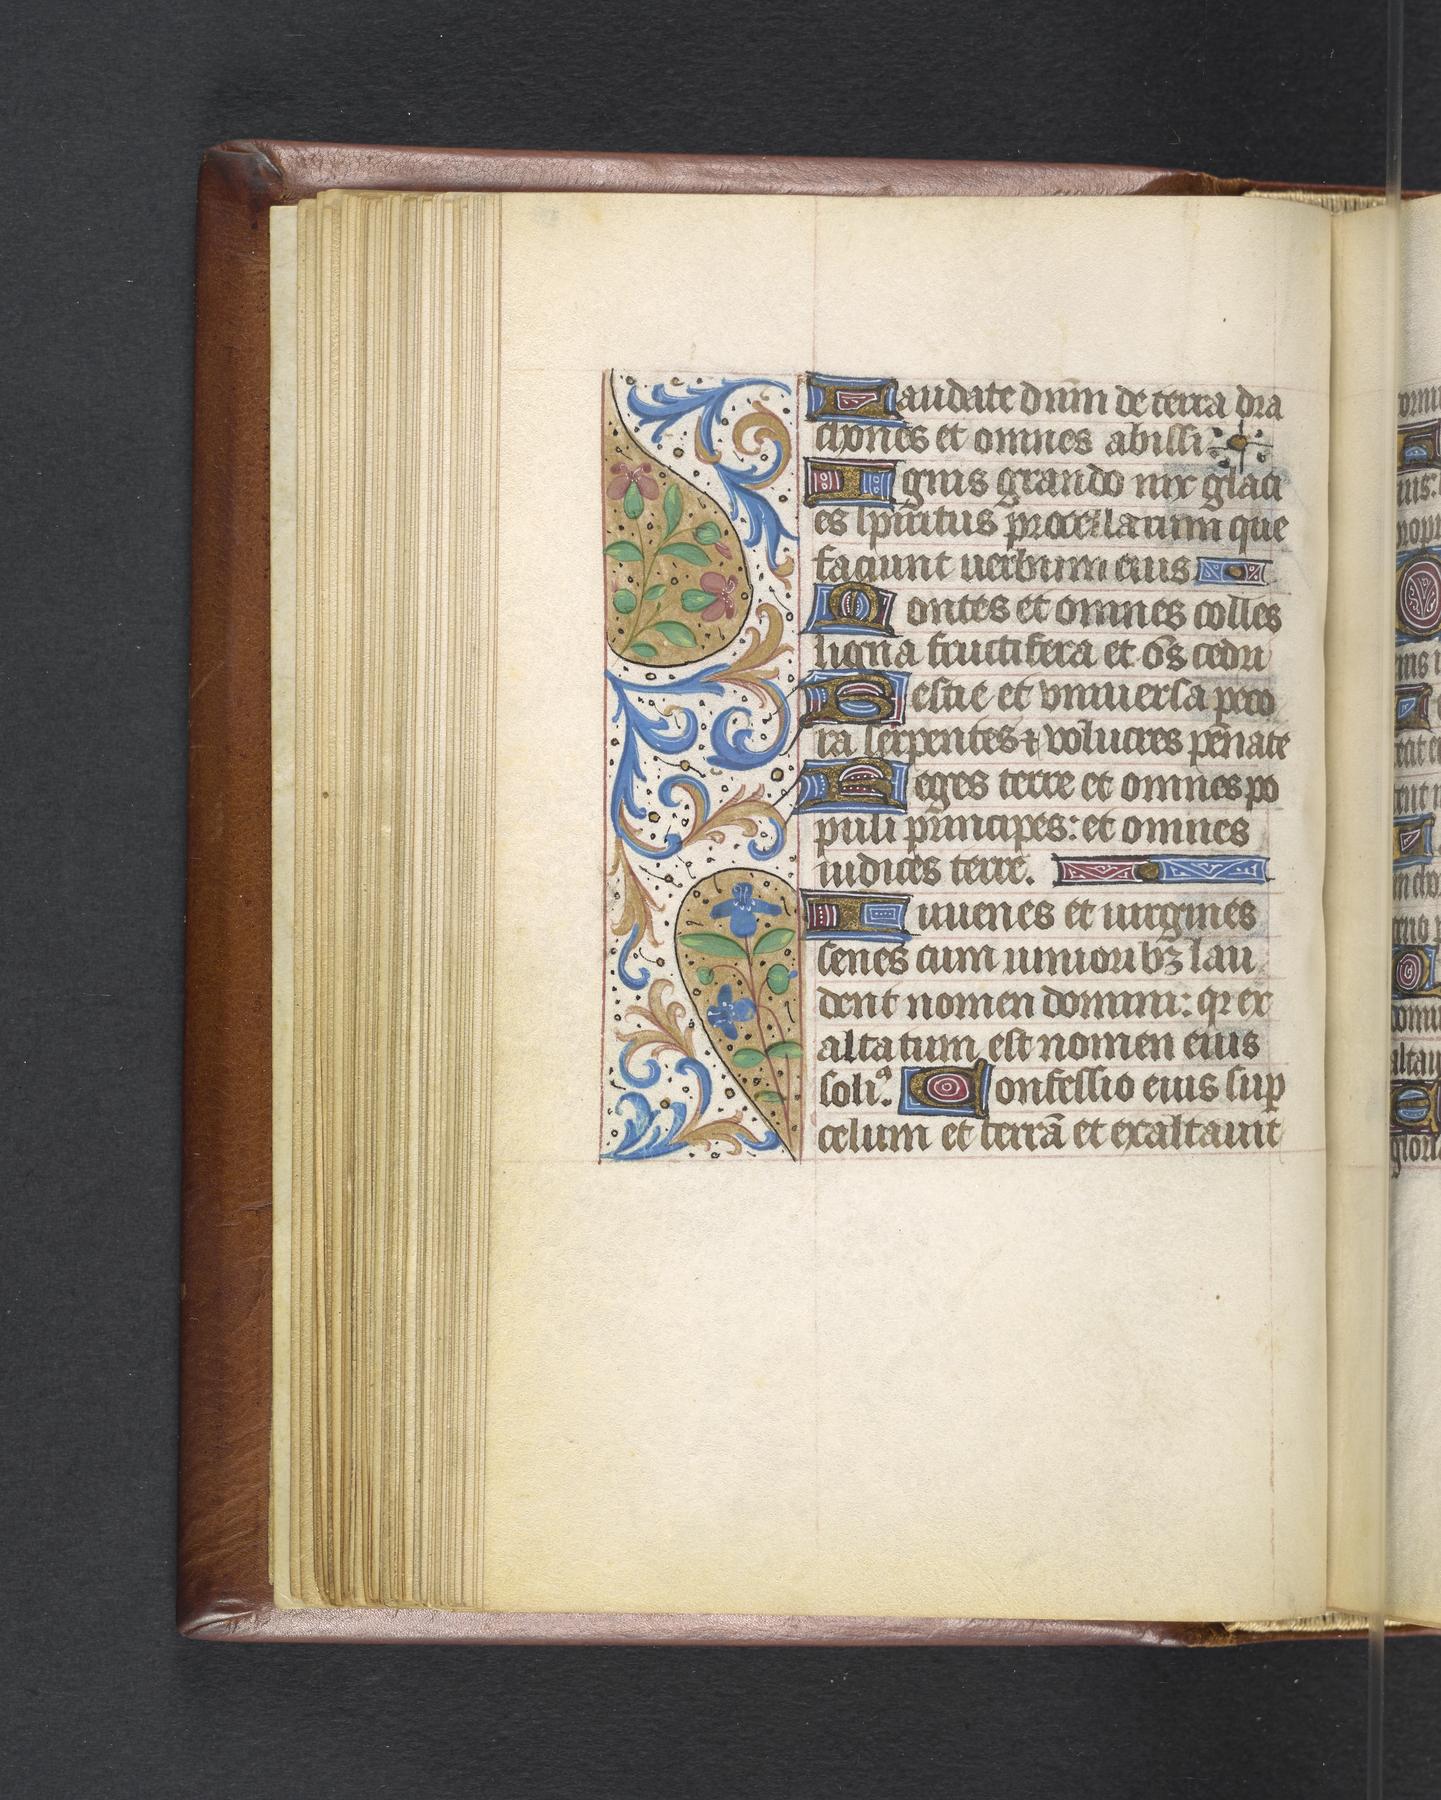 Laudate dñm de terra dra
chones et omnes abissi.
Ignis grando nix glaci
es spiritus procellarum que
faciunt uerbum eius
Montes et omnes colles
ligna fructifera et õs cedri
Bestie et vniuersa peco
ra serpentes ⁊ volucres pẽnate
Reges terre et omnes po
puli principes: et omnes
iudices terre.
Iuuenes et uirgines
senes cum iunioribꝫ lau
dent nomen domini: qr ex
altatum est nomen eius
soliꝰ. Confessio eius sup
celum et terrã et exaltauit